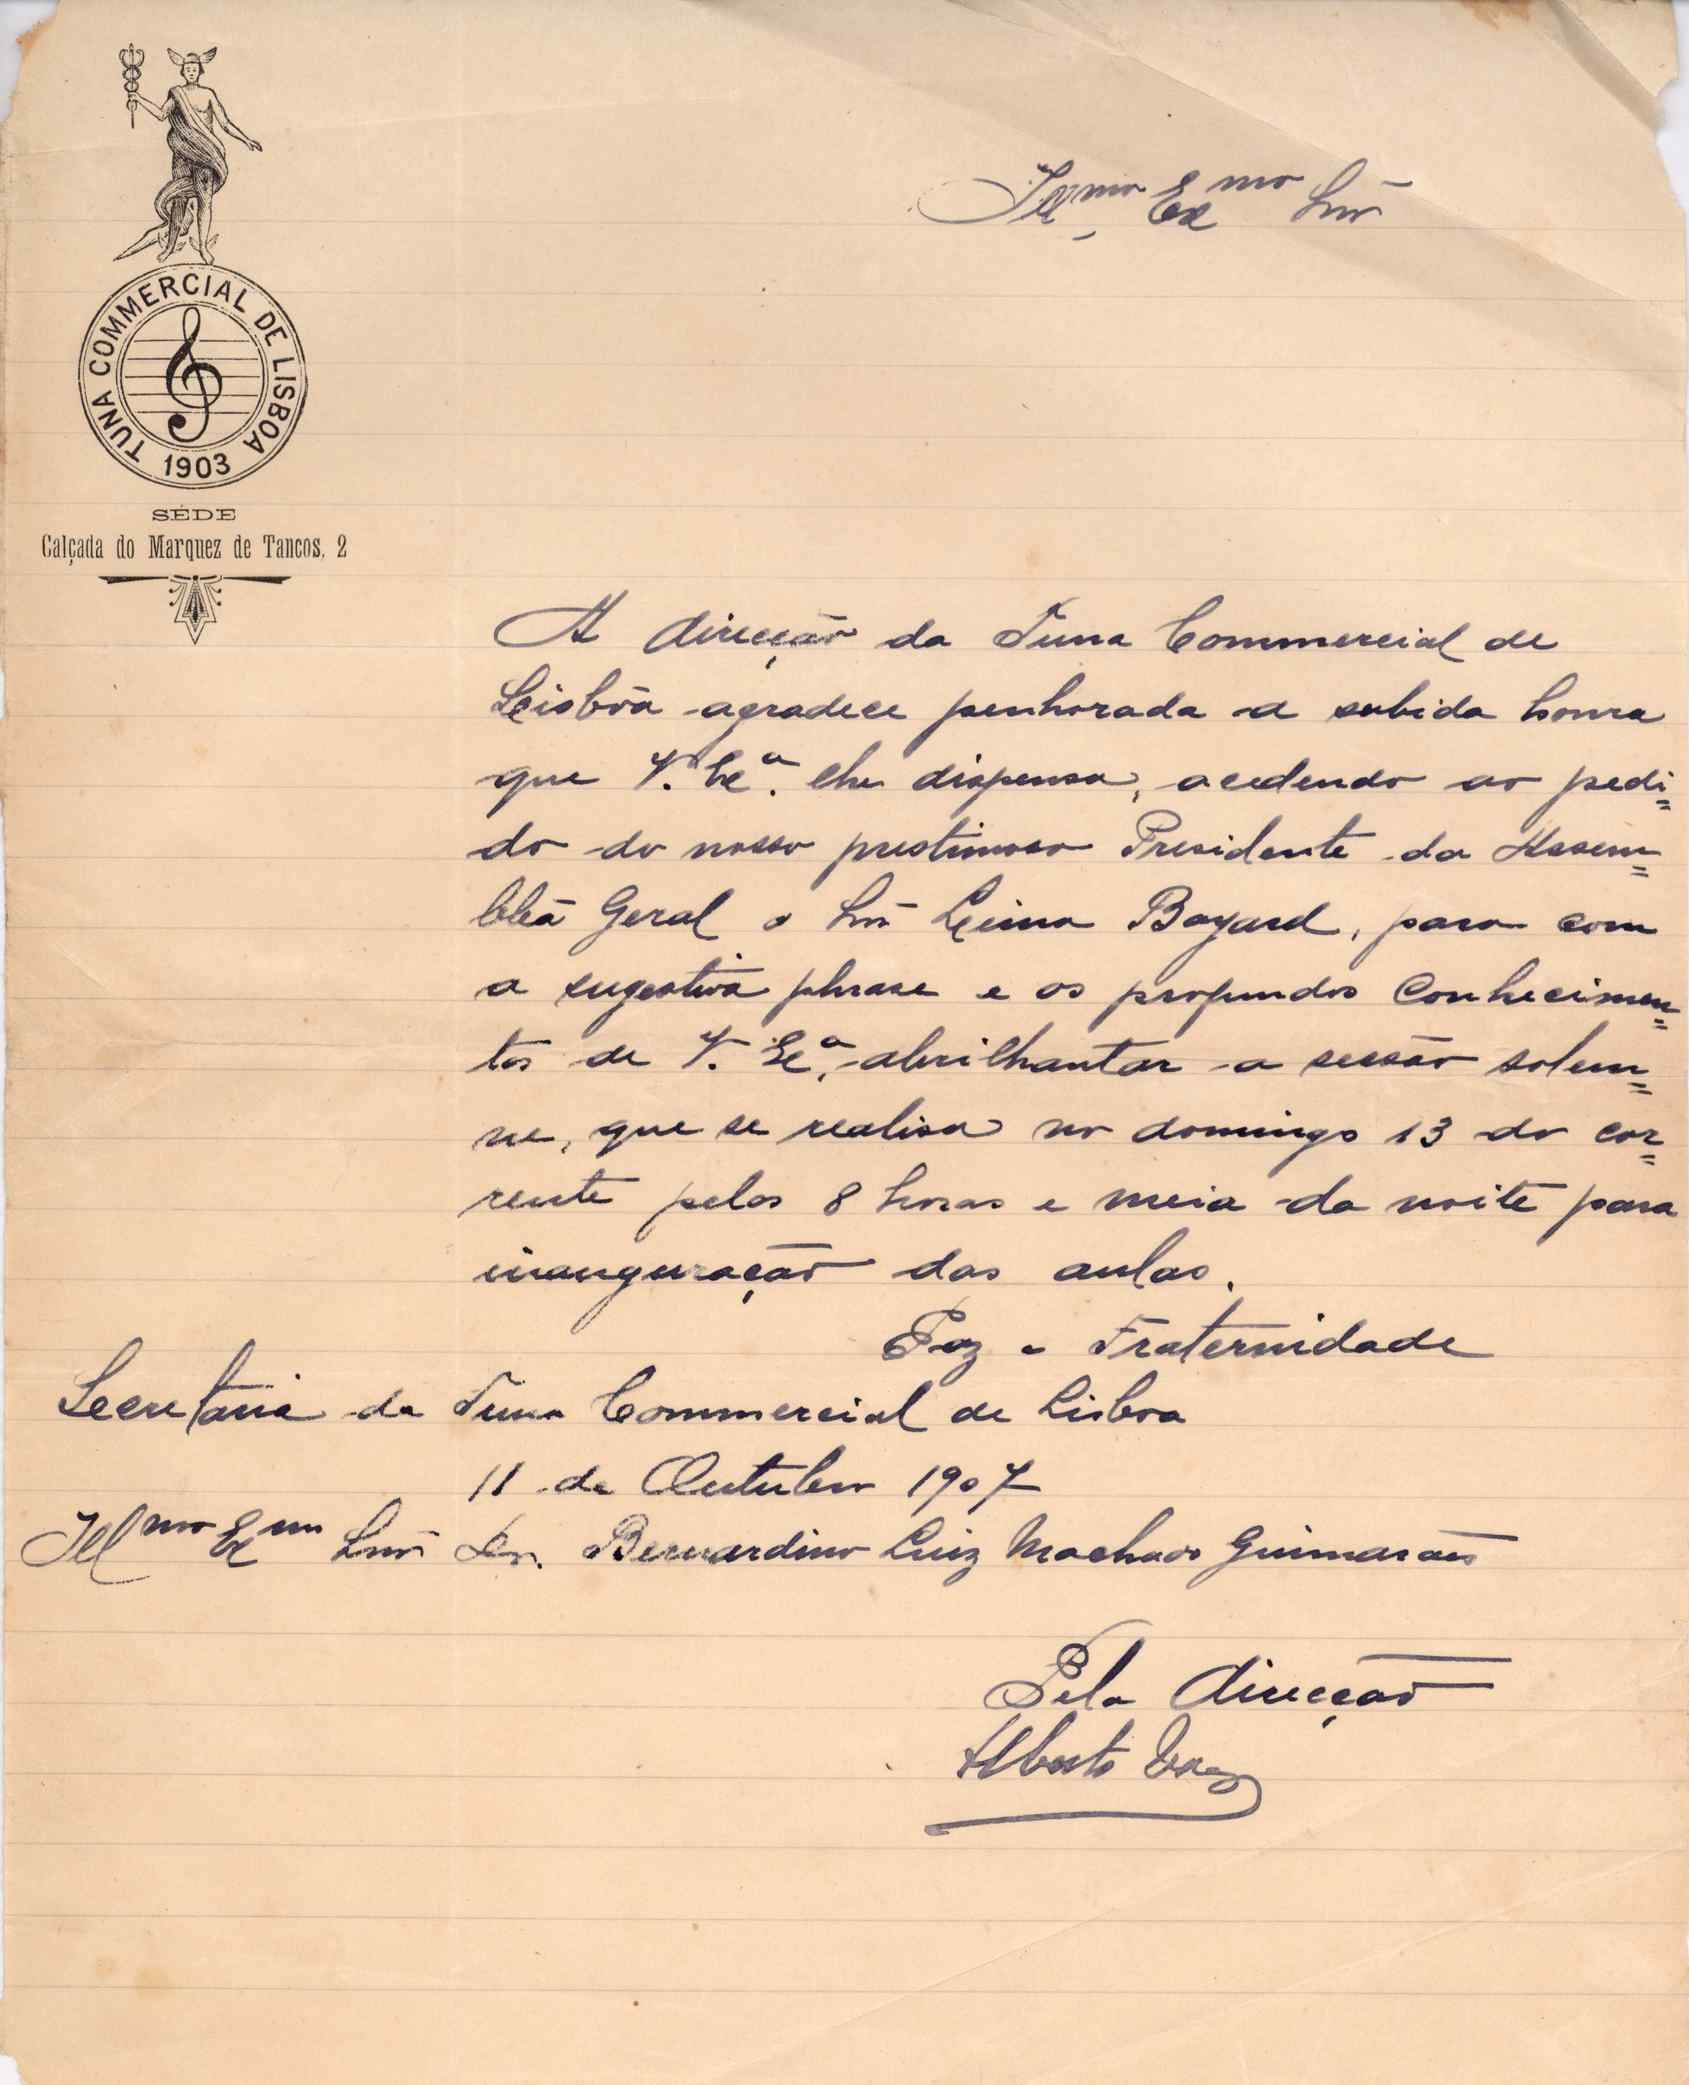 TUNA COMMERCIAL DE LISBOA
1903
SÉDE
Calçada do Marquez de Tancos, 2
Illmo Exmo Snr
A direcção da Tuna Commercial de
Lisbôa agradece penhorada a subida honra
que V. Exª. lhe dispensa, acedendo ao pedi=
do do nosso prestimoso Presidente da Assem=
bleá Geral o Snr Lima Bayard, para com
a sugestiva phrase e os profundos conhecimen=
tos de V. Exª. abrilhantar a sessão solem=
ne, que se realisa no domingo 13 do cor=
rente pelas 8 horas e meia da noite para
inauguração das aulas.
Paz e Fraternidade
Secretaria da Tuna Commercial de Lisboa
11 de Outubro 1907
Illmo Exmo Snr Dr. Bernardino Luiz Machado Guimarães
Pela Direcção
Alberto Vaz